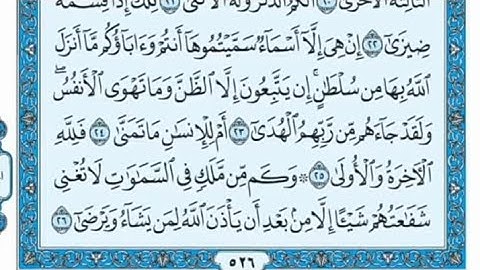 الثَّالِثَةَ الْأُخْرَىٰ ٢٠ أَلَكُمُ الذَّكَرُ وَلَهُ الْأُنثَىٰ ٢١ تِلْكَ إِذًا قِسْمَةٌ
ضِيزَىٰ ٢٢ إِنْ هِيَ إِلَّا أَسْمَاءٌ سَمَّيْتُمُوهَا أَنتُمْ وَءَابَاؤُكُم مَّا أَنزَلَ
اللَّهُ بِهَا مِن سُلْطَانٍ ۚ إِن يَتَّبِعُونَ إِلَّا الظَّنَّ وَمَا تَهْوَى الْأَنفُسُ ۖ
وَلَقَدْ جَاءَهُم مِّن رَّبِّهِمُ الْهُدَىٰ ٢٣ أَمْ لِلْإِنسَانِ مَا تَمَنَّىٰ ٢٤ فَلِلَّهِ
الْآخِرَةُ وَالْأُولَىٰ ٢٥ ۞ وَكَم مِّن مَّلَكٍ فِي السَّمَاوَاتِ لَا تُغْنِي
شَفَاعَتُهُمْ شَيْئًا إِلَّا مِن بَعْدِ أَن يَأْذَنَ اللَّهُ لِمَن يَشَاءُ وَيَرْضَىٰ ٢٦
٥٢٦